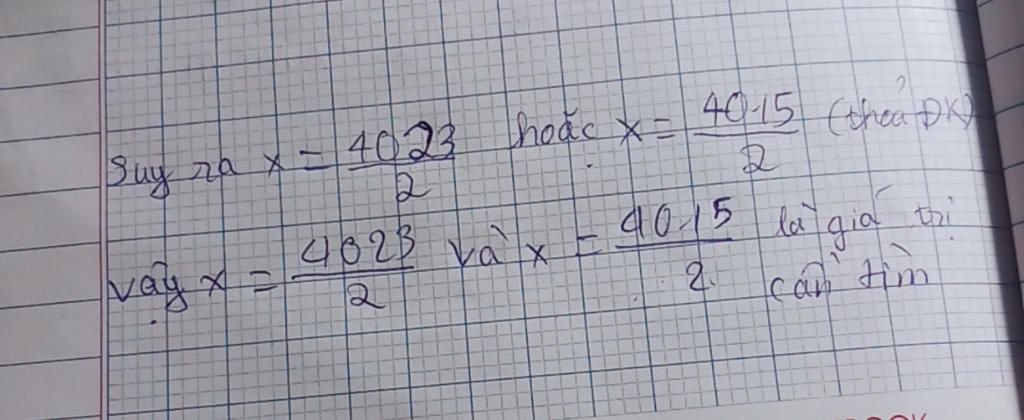 Suy ra x = 4023/2 hoặc x = 4015/2 (thỏa ĐK)
vậy x = 4023/2 và x = 4015/2 là giá trị
cần tìm